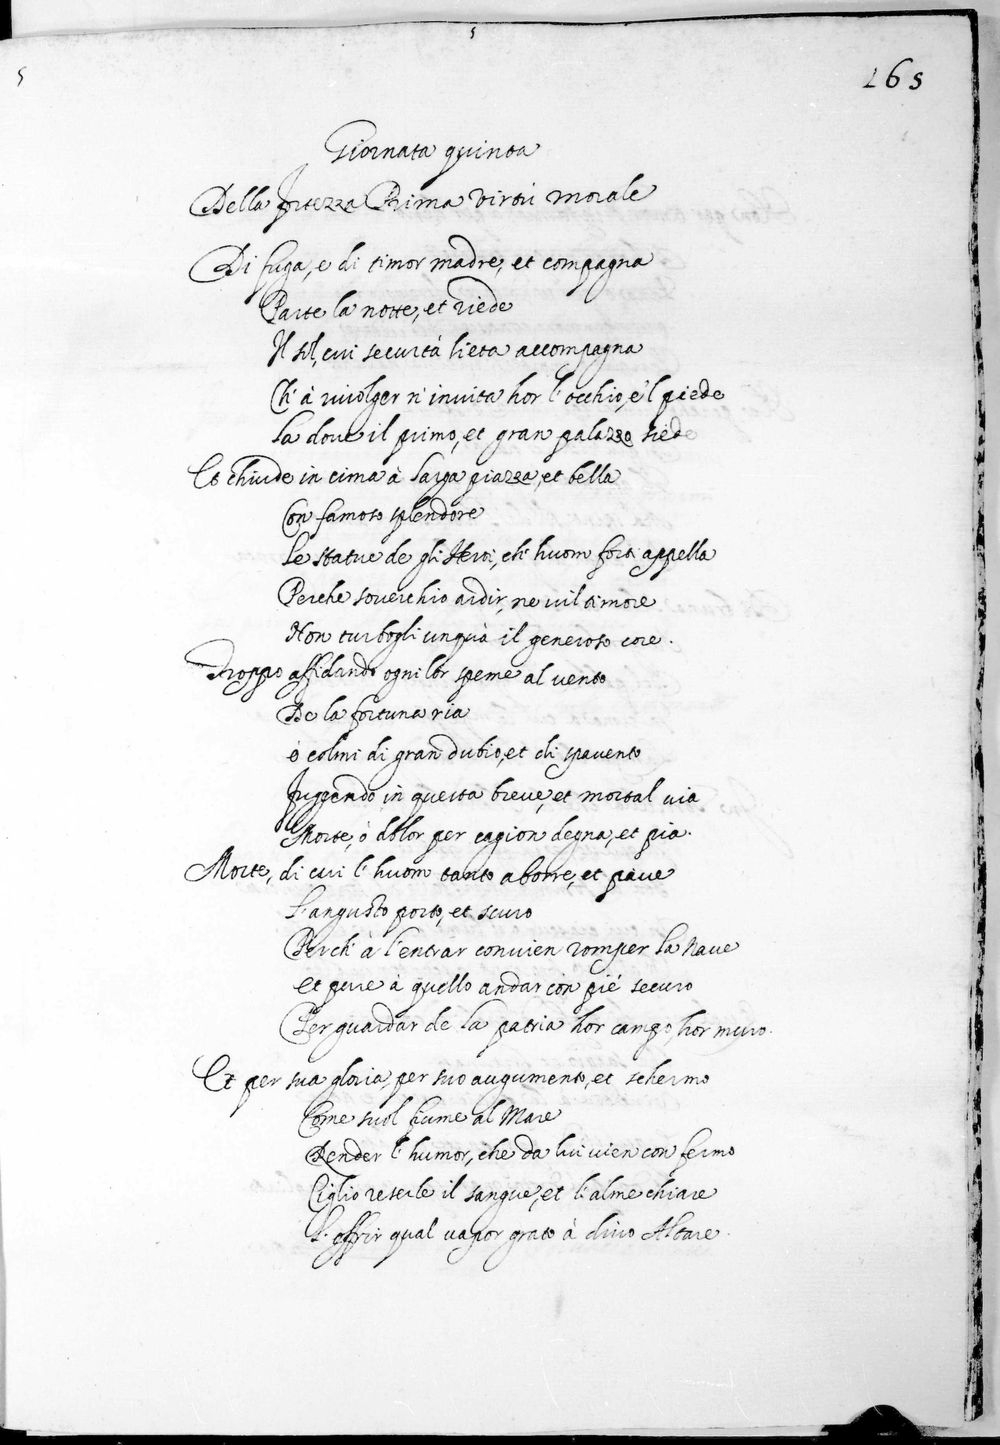 5
5
265
Giornata quinta
Della fortezza Prima virtù morale
Di fuga, e di timor madre, et compagna
Parte la notte, et riede
Il sol, cui securtà lieta accompagna
Ch' à rivolger n' invita hor l' occhio, e 'l piede
La dove il primo, et gran palazzo siede
Lo chiude in cima à larga piazza, et bella
Con famoso splendore
Le statue de gli Heroi, ch' huom forti appella
Perche soverchio ardir, ne vil timore
Non turbogli unquà il generoso core.
Troppo affidando ogni lor speme al vento
De la fortuna ria
ò colmi di gran dubio, et di spavento
Fuggendo in questa breve, et mortal via
Morte, ò dolor per cagion degna, et pia.
Morte, di cui l' huom tanto aborre, et pave
L' angusto porto, et scuro
Perch' à l' entrar convien romper la Nave
Et pure à quello andar con piè securo
Per guardar de la patria hor campo, hor muro.
Et per sua gloria, per suo augumento, et schermo
Come suol fiume al Mare
Render l' humor, che da lui vien con fermo
Ciglio reserle il sangue, et l' alme chiare
L' offrir qual vapor grato à divo Altare.